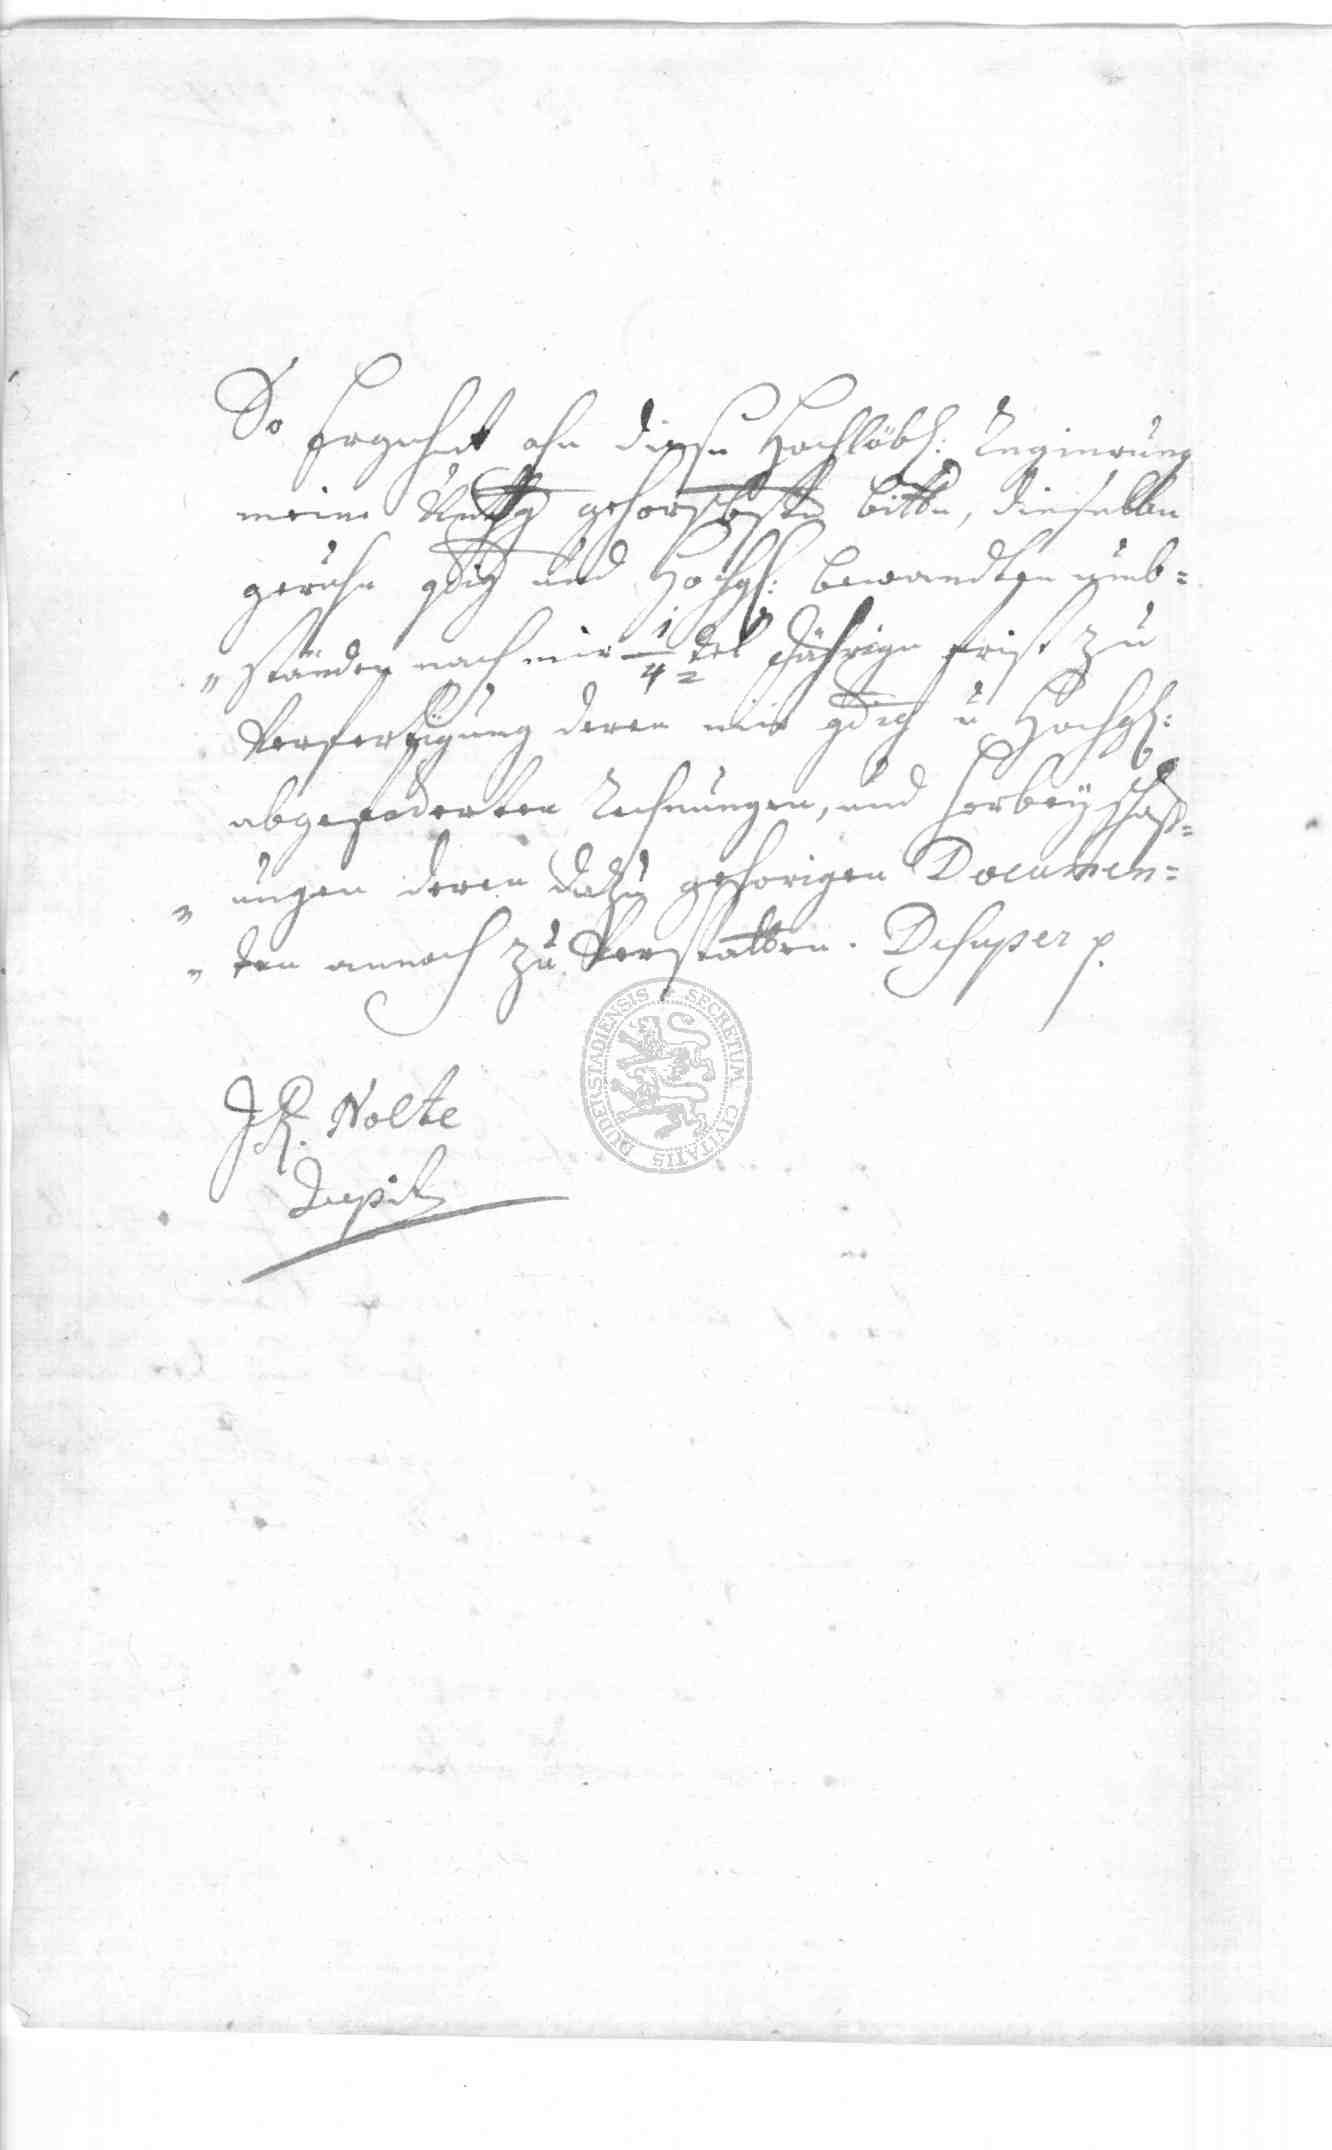 So Ergehet ahn diese Hochlöbl: Regierung
meine Untthg gehorsbste bitte, dieselbe
geruhe gdig und Hochgl: bewandten umb=
" ständen nach mir 1/4 tel Jährige frist zu
Verfertigung deren mir gdig u Hochgl:
abgefoderten Rechnungen, und herbeyschaff=
" ungen deren dazu gehörigen Documen=
" ten annoch zu Verstatten. Desuper p.
JR. Nolte
SECRETUM CIVITATIS DUDERSTADIENSIS